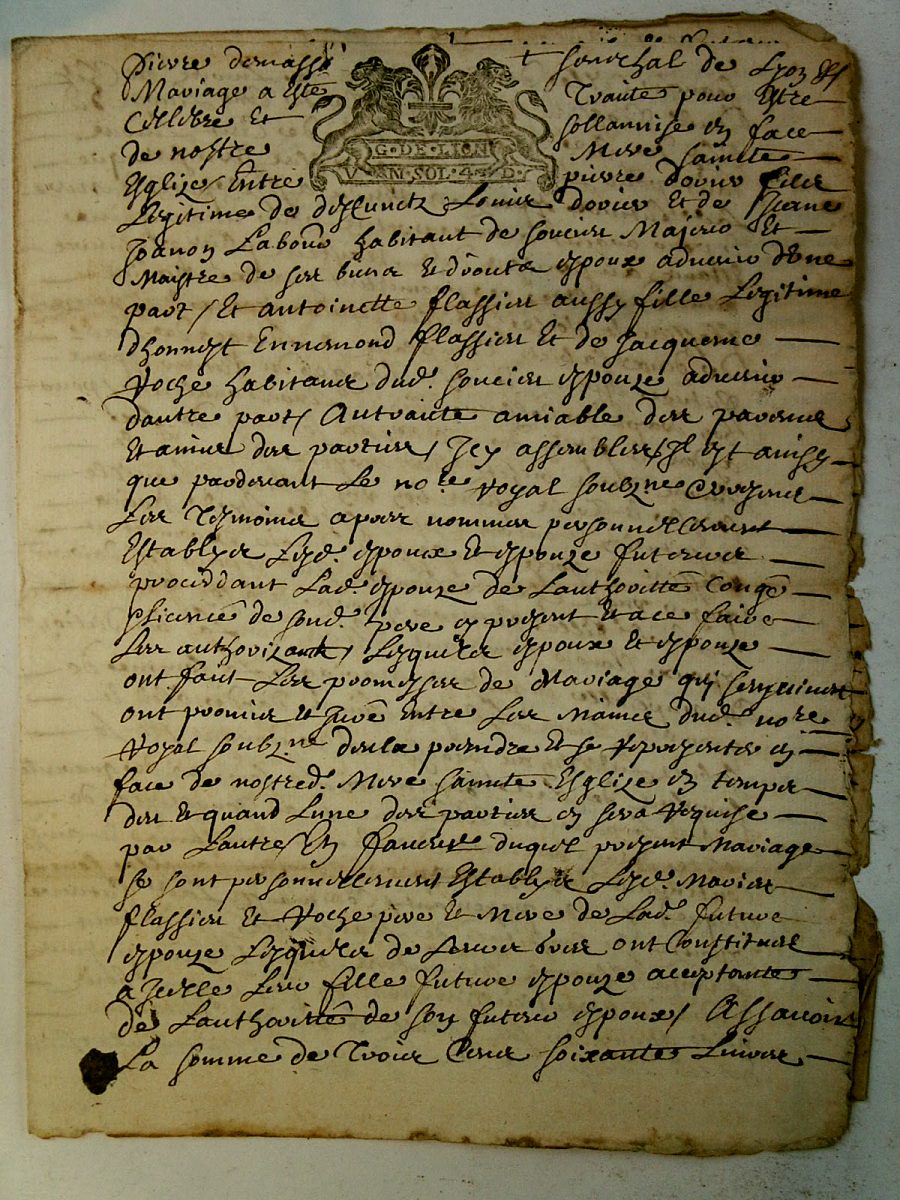 Pierre demassò senechal de Lyon &
Mariage a esté Traitté pour Estre
Celebré Et sollannisé en face
de nostre Mere saincte
G·DE·LION
V·AN·SOL·4·D
Esglize, Entre pierre dovier filz
Legitime de deffunctz Louis dovier Et de Jeanne
Janon Laboureur habitant de Majeur Et
Maistre de ses biens Et droits espoux advenir d'une
part, Et antoinette flassieu aussy fille Legitime
dhonnest Ennemond flassieu Et de Jacqueme
Roche habitans dud. espouze advenir
dautre part, Au traitté amiable des parens
Et amis des parties, Icy assemblez, Il est ainsy
que pardevant Le no.re royal soubz.ne Et presens
Les Tesmoins apres nommez personnellement
Establys Lesd. espoux Et espouze futeurs
proceddant Lad. espouze de Lauthoritté Congé
& licence de sond. pere en present Et a ce faire
Les authorizant, Lesquels espoux et espouze
ont fait Les promesses de Mariage qui
ont promis et juré Entre Les Mains dud. no.re
royal soubz.ne de se prendre Et se representer en
face de nostred. Mere saincte Esglize en temps
deu Et quand Lune des parties en sera requise
par Lautre, En faveur duquel present Mariage
se sont personnellement Establys Lesd. Mariez
flassieu Et Roche pere Et Mere de Lad. future
espouze Lesquels de Leurs biens ont Constitué
a Icelle Leur fille future espouze acceptante
de Lauthorité de son futeur espoux, Assavoir
La somme de Trois Cens soixante Livres